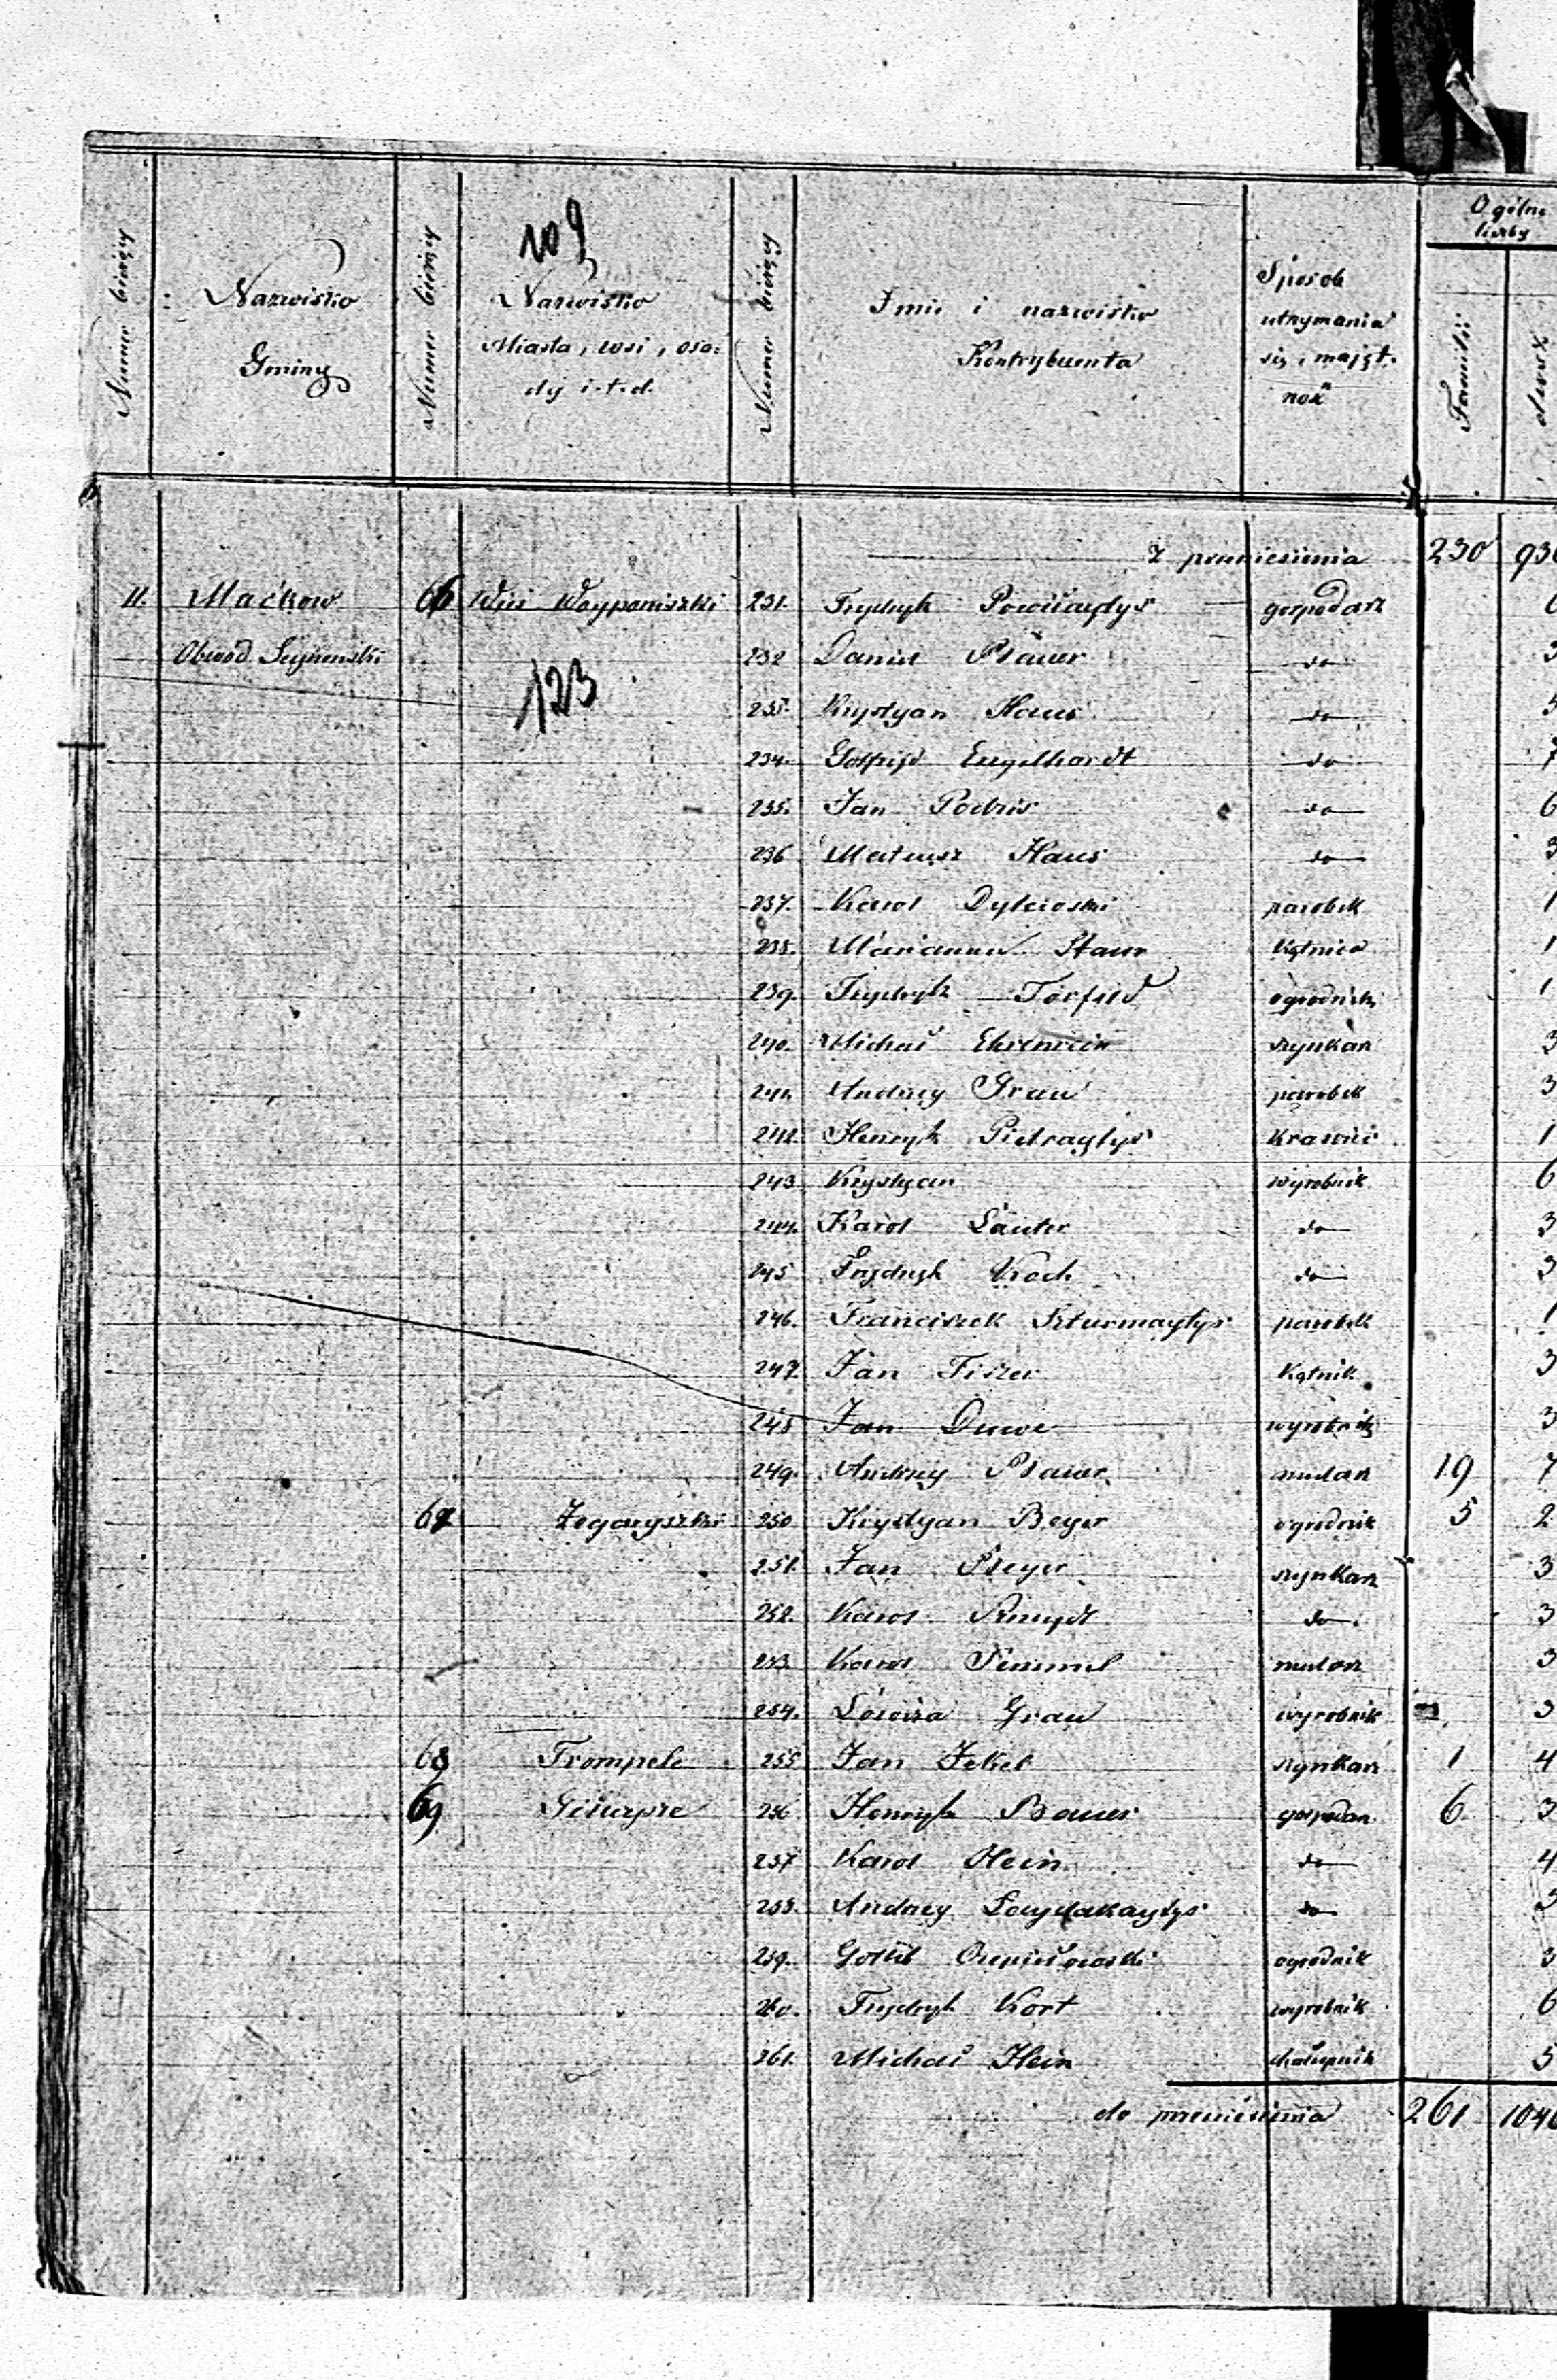 109
Numer bieżący
Nazwisko Gminy
Numer bieżący
Nazwisko Miasta, wsi, osady i.t.d.
Numer bieżący
Imie i nazwisko Kontrybuenta
Sposob utrzymania się i majątność
Ogólne liczby
Familii
dusz
z przeniesienia 230 930
11. Maćkow 66 Wieś Woyponiszki 231. Frydryk gospodarz
Obwod Seyneński 232 Daniel Bauer do 3
123
233. Krystyan Haus do 5
234. Gotfryd Engelhardt do 7
235. Jan Podris do 6
236 Mateusz Haus do 3
237. Karol parobek 1
238. Maryanna kątnica 1
239. Frydryk ogrodnik 1
240. Michał szynkarz 3
241. Andrzey Grau parobek 3
242. Henryk Pietraytys krawiec 1
243 Krystyan wyrobnik 6
244. Karol Lauter do 3
245 Frydryk Koch do 3
246. Franciszek Szturmaytys parobek 1
247. Jan Fiszer kątnik 3
248 Jan Duwe wyrobnik 3
249. Andrzey Bauer mularz 19 7
67 Zegayszki 250 Krystyan Beyer ogrodnik 5 2
251. Jan Beyer szynkarz 3
252. Karol Szmydt do 3
253. Karol mularz 3
254. Lowiza Grau wyrobnik 3
68 Trompele 255 Jan Jekel szynkarz 1 4
69 256 Henryk Bauer gospodarz 6 3
257 Karol Hein do 4
258. Andrzey do 3
259. Gotlib ogrodnik 3
260. Frydryk Kort wyrobnik 6
261. Michał Hein chałupnik 5
do przeniesienia 261 1046